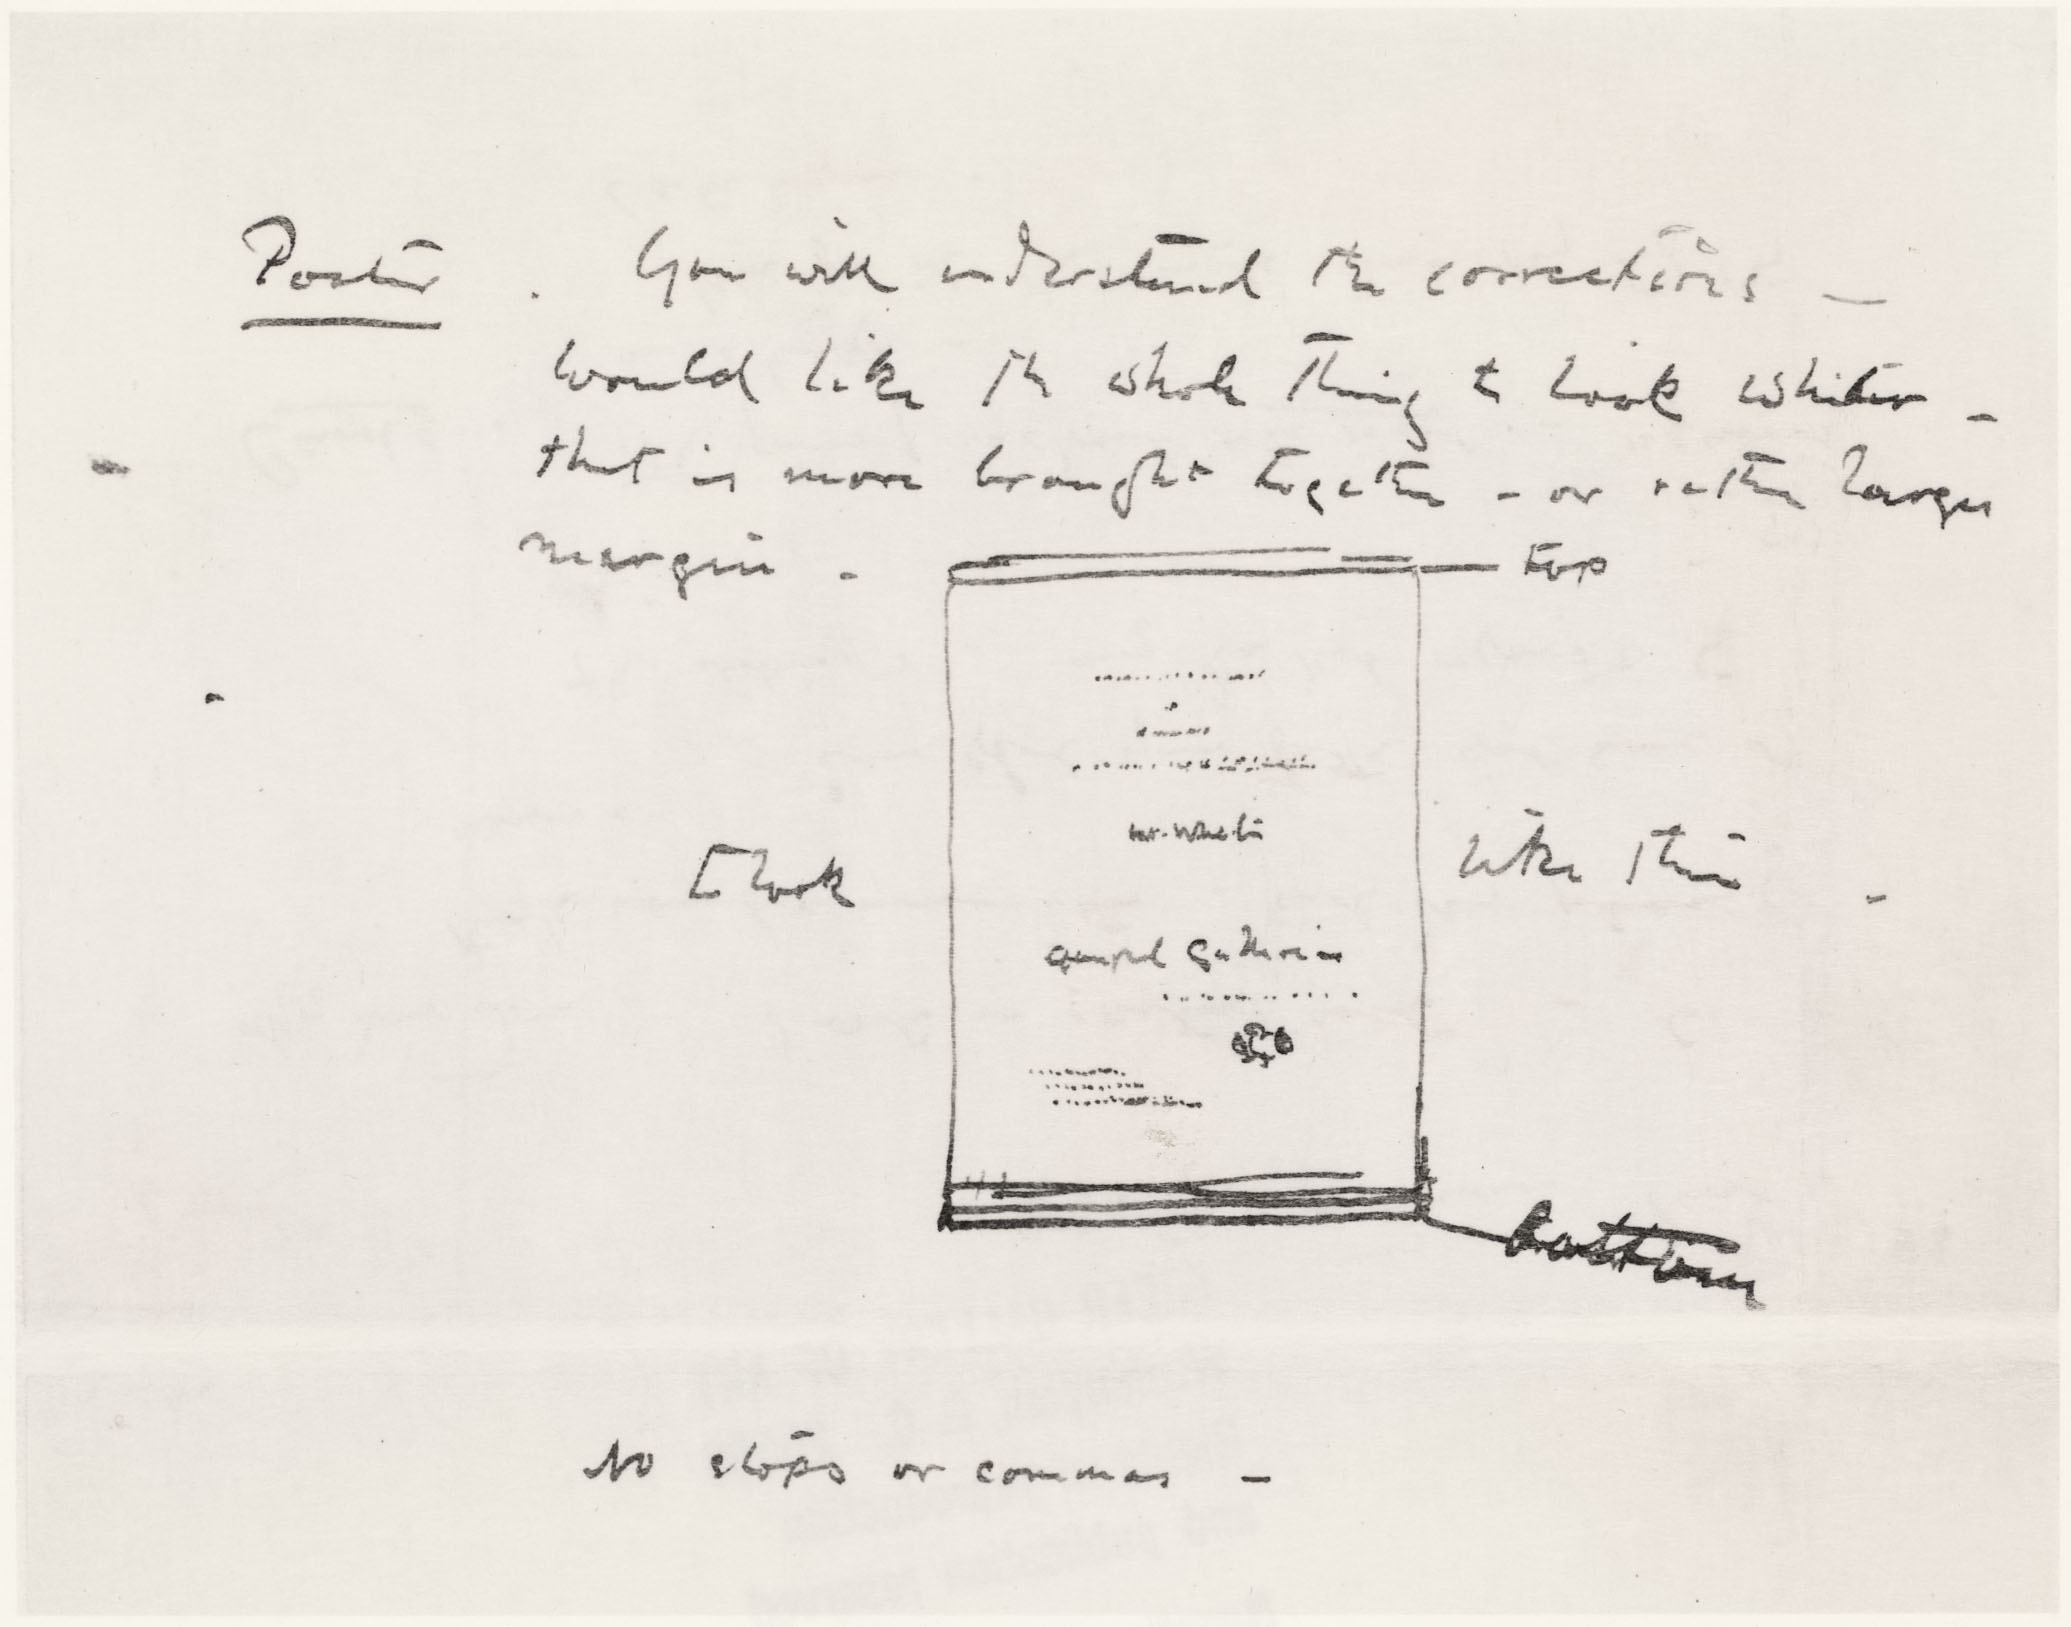 Poster . You will understand the corrections —
would like the whole thing to look whiter -
that is more brought together - or rather larger
margin -
top
to look
like this -
bottom
No stops or commas -